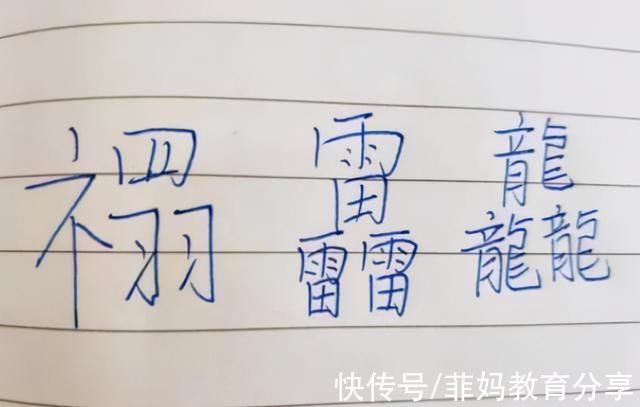 禤 靐 龘
快传号/菲妈教育分享